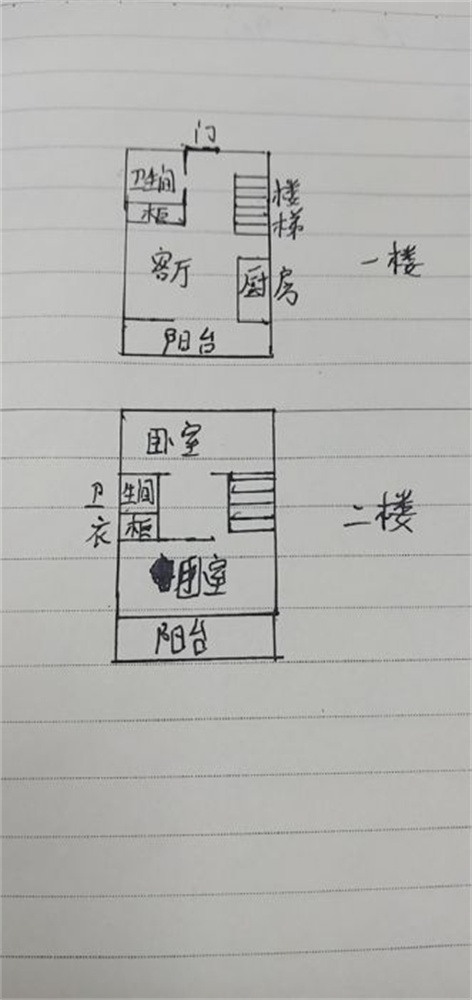 门
卫生间
柜
楼梯
客厅
厨房
一楼
阳台
卧室
卫生间
衣柜
二楼
卧室
阳台